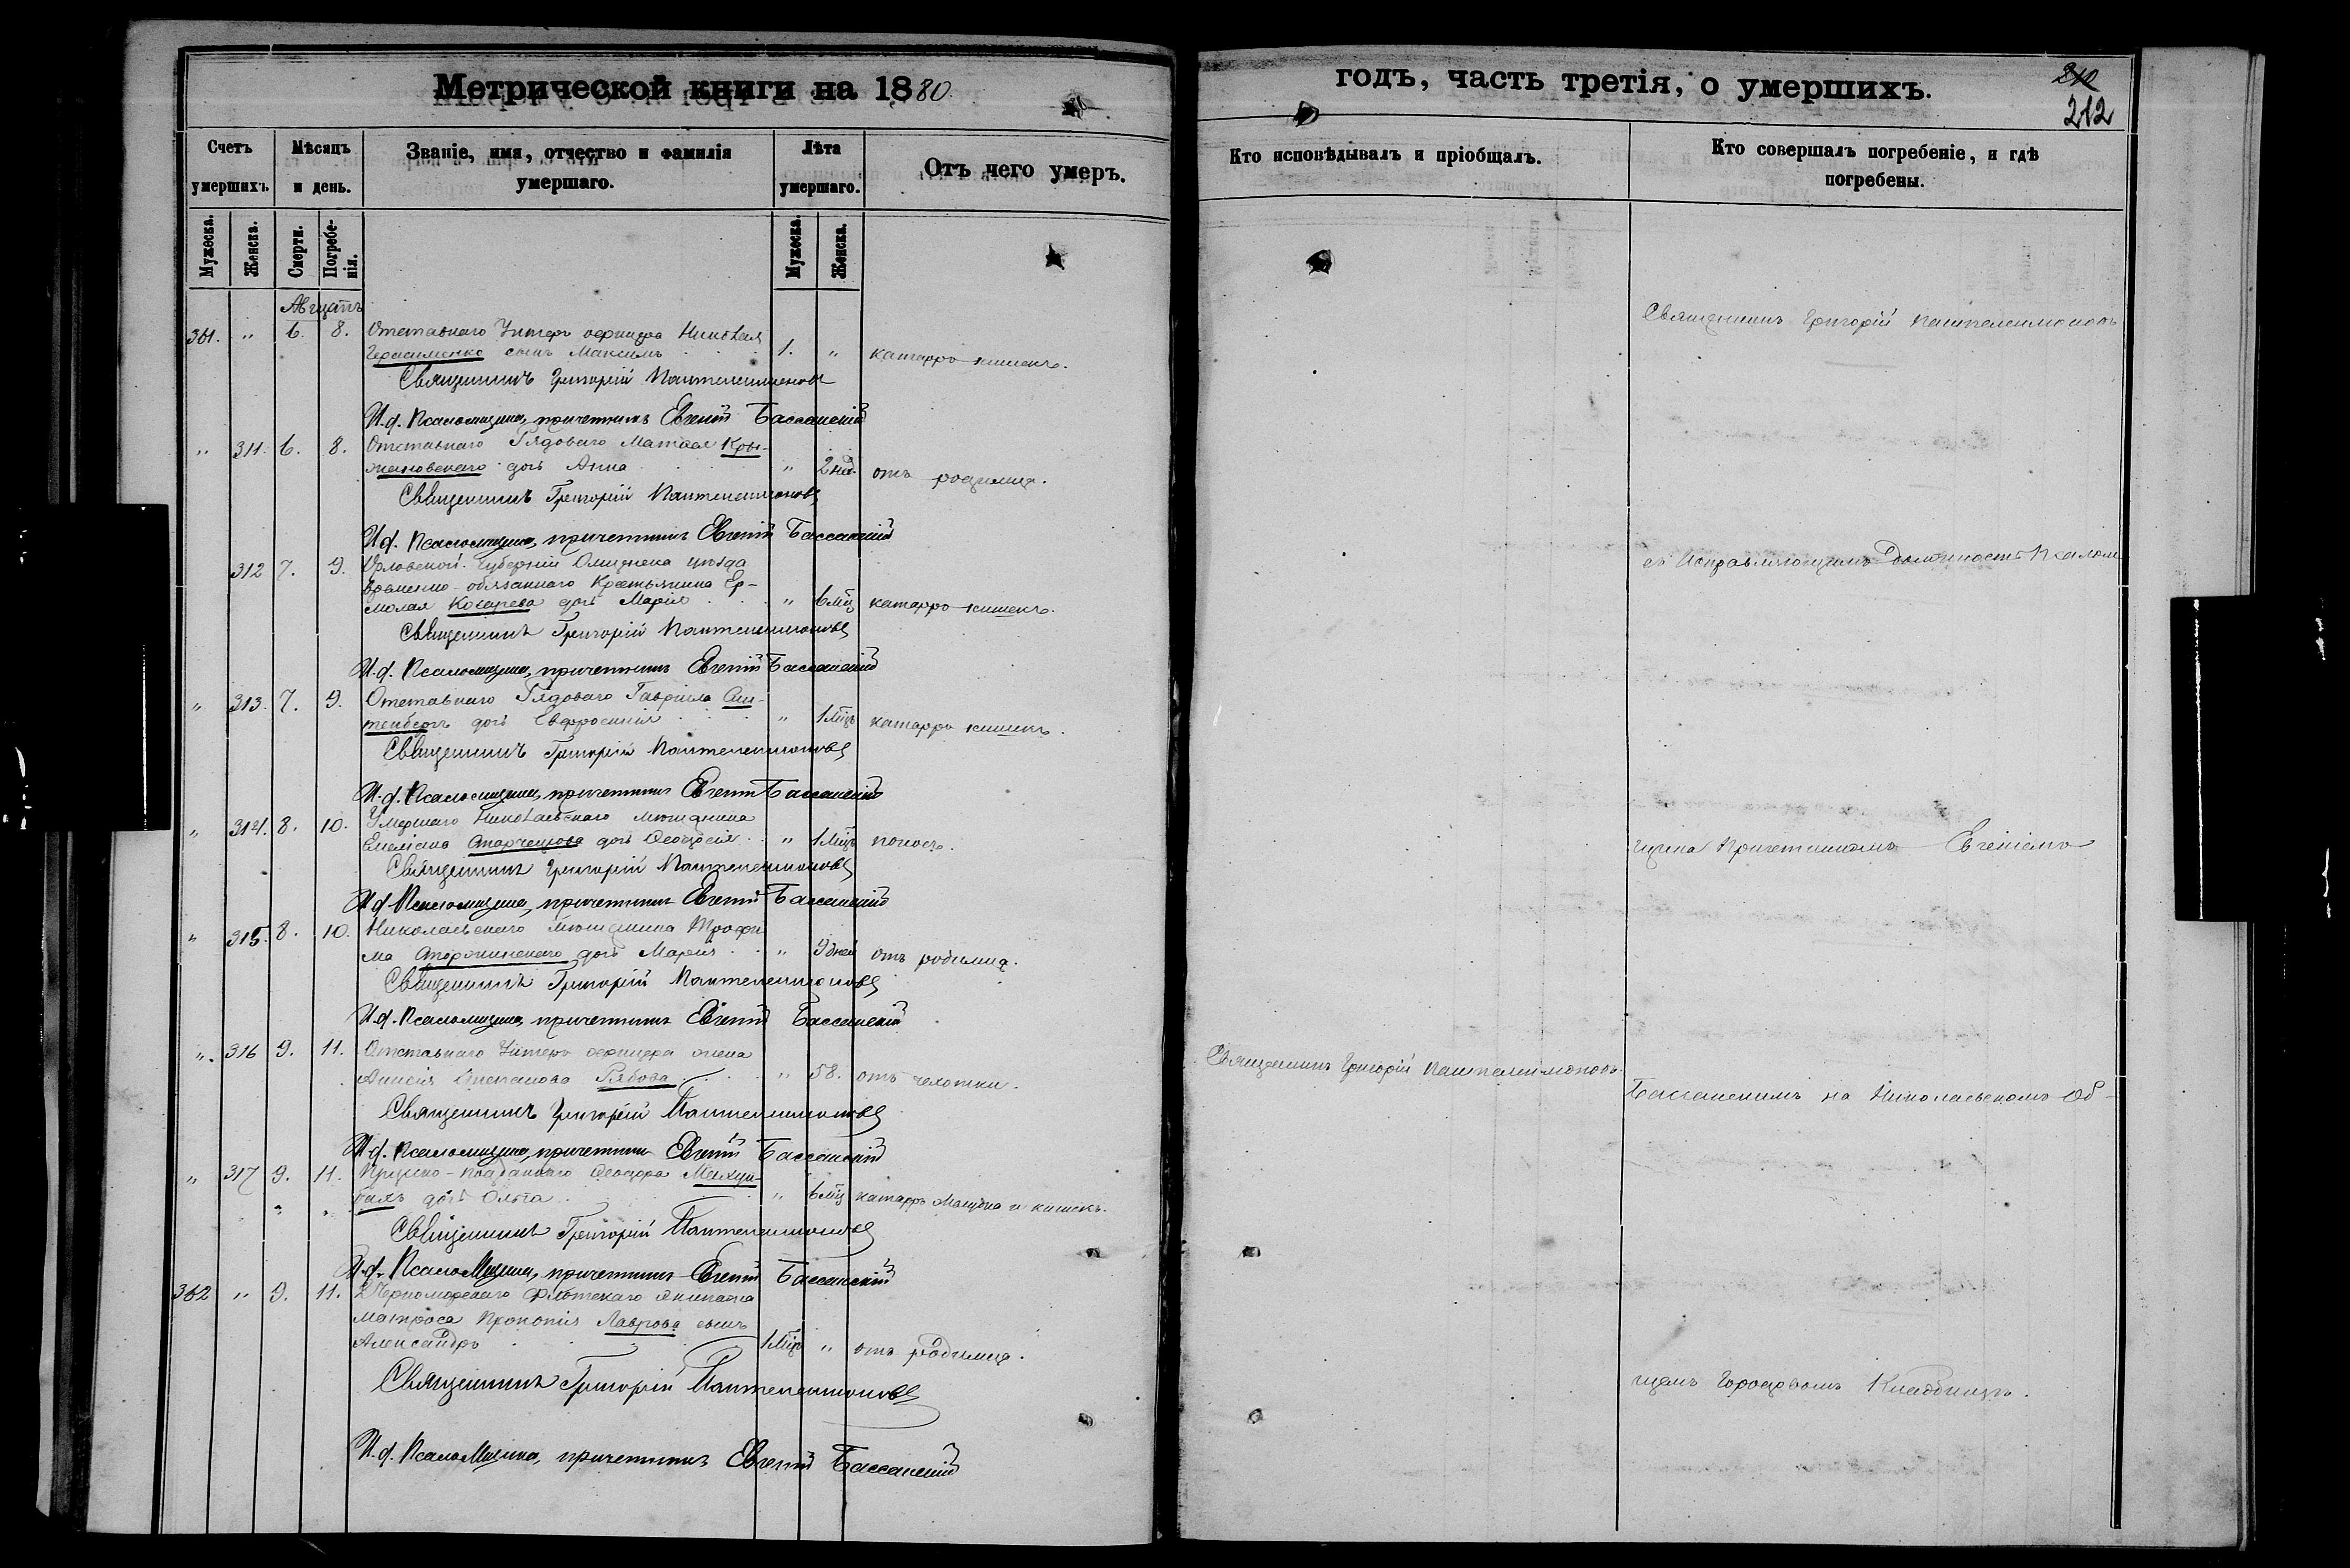 Метрической книги на 1880
годъ, часть третія, о умершихъ.
212
Счетъ умершихъ.
Мѣсяцъ и день.
Званіе, имя, отчество и фамилія умершаго.
Лѣта умершаго.
Отъ чего умеръ.
Кто исповѣдывалъ и пріобщалъ.
Кто совершалъ погребеніе, и гдѣ погребены.
Мужеска. Женска. Смерти. Погребенія. Мужеска. Женска.
Августъ
361. " 6. 8. Отставнаго Унтеръ офицера Николая
Герасименко сынъ Максимъ 1. " катарръ кишекъ.
Священникъ Григорій Пантелеимоновъ
И.д. Псаломщика, причетникъ Евгеній Бассанскій
" 311. 6. 8. Отставнаго Рядоваго Матвея Кры-
жановскаго дочь Анна " 2 нед. отъ родимца.
Священникъ Григорій Пантелеимоновъ
И.д. Псаломщика, причетникъ Евгеній Бассанскій
312 7. 9. Орловской Губерніи уѣзда
временно-обязаннаго Крестьянина Ер-
молая Косарева дочь Марія " 6 мѣц катарръ кишекъ.
Священникъ Григорій Пантелеимоновъ
И.д. Псаломщика, причетникъ Евгеній Бассанскій
" 313. 7. 9. Отставнаго Рядоваго Гавріила
дочь Евфросинія " 1 мѣц катарръ кишекъ.
Священникъ Григорій Пантелеимоновъ
И.д. Псаломщика, причетникъ Евгеній Бассанскій
" 314. 8. 10. Умершаго Николаевскаго мѣщанина
Емеліана Старченкова дочь Ѳеодосія " 1 мѣц поносъ.
Священникъ Григорій Пантелеимоновъ
И.д. Псаломщика, причетникъ Евгеній Бассанскій
" 315. 8. 10. Николаевскаго мѣщанина Трофи
ма Сторожинскаго дочь Марія " 9 дней отъ родимца.
Священникъ Григорій Пантелеимоновъ
И.д. Псаломщика, причетникъ Евгеній Бассанскій
" 316 9. 11. Отставнаго Унтеръ офицера жена
Анисія Степанова Рябова " 58. отъ чахотки.
Священникъ Григорій Пантелеимоновъ
И.д. Псаломщика, причетникъ Евгеній Бассанскій
" 317 9. 11. Прусско-подданнаго Ѳеодора
дочь Ольга " 6 мѣц катарръ желудка и кишекъ.
Священникъ Григорій Пантелеимоновъ
И.д. Псаломщика, причетникъ Евгеній Бассанскій
362 " 9. 11. 2 Черноморскаго Флотскаго экипажа
матроса Прокопія Лаврова сынъ
Александръ 1 мѣц " отъ родимца.
Священникъ Григорій Пантелеимоновъ
И.д. Псаломщика, причетникъ Евгеній Бассанскій
Священникъ Григорій Пантелеимоновъ
Священникъ Григорій Пантелеимоновъ
съ Исправляющимъ Должность Псалом
щика Причетникомъ Евгеніемъ
Бассанскимъ на Николаевскомъ Об-
щемъ Городовомъ Кладбищѣ.